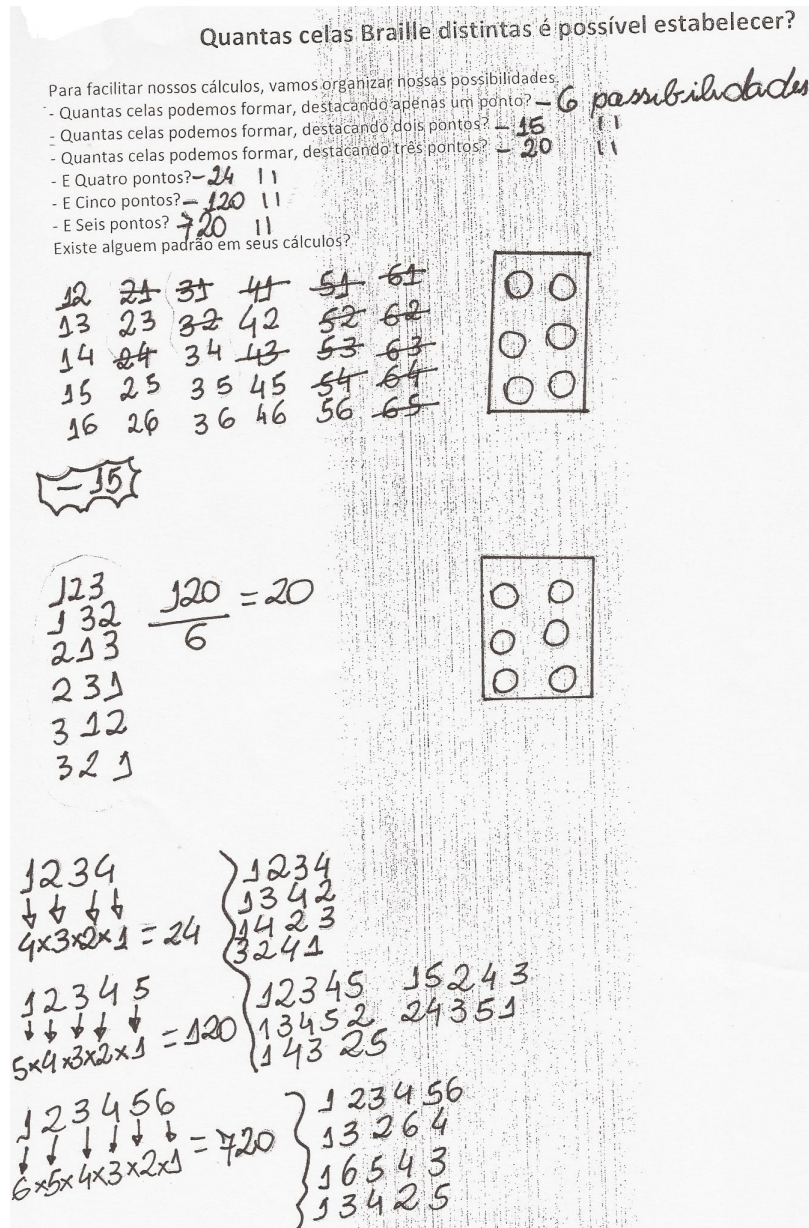 Quantas celas Braille distintas é possível estabelecer?
Para facilitar nossos cálculos, vamos organizar nossas possibilidades.
- Quantas celas podemos formar, destacando apenas um ponto? - 6 possibilidades
- Quantas celas podemos formar, destacando dois pontos? - 15 "
- Quantas celas podemos formar, destacando três pontos? - 20 "
- E Quatro pontos? - 24 "
- E Cinco pontos? - 120 "
- E Seis pontos? 720 "
Existe alguem padrão em seus cálculos?
12 21 31 41 51 61
13 23 32 42 52 62
14 24 34 43 53 63
15 25 35 45 54 64
16 26 36 46 56 65
- 15
123
132
213
231
312
321
120/6 = 20
1234
4x3x2x1 = 24
1234
1342
1423
3241
12345
5x4x3x2x1 = 120
12345 15243
13452 24351
14325
123456
6x5x4x3x2x1 = 720
123456
13264
16543
13425